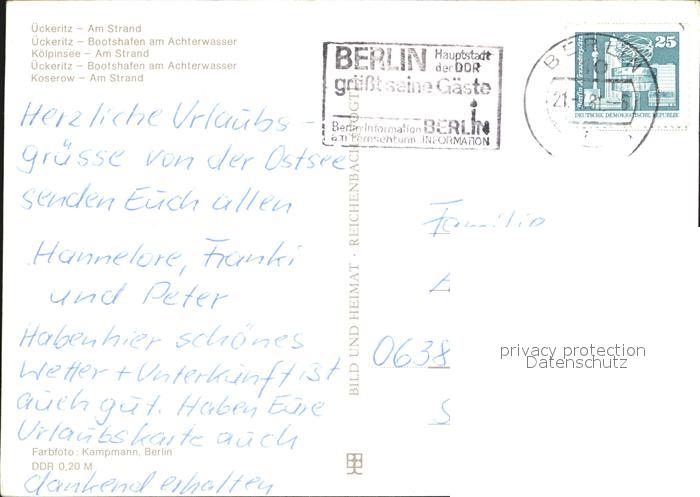 Ückeritz – Am Strand
Ückeritz – Bootshafen am Achterwasser
Kölpinsee – Am Strand
Ückeritz – Bootshafen am Achterwasser
Koserow – Am Strand
Herzliche Urlaubs-
grüsse von der Ostsee
senden Euch allen
Hannelore, Franki
und Peter
Haben hier schönes
Wetter + Unterkunft ist
auch gut. Haben Eure
Urlaubskarte auch
dankend erhalten
Farbfoto: Kampmann, Berlin
DDR 0,20 M
BILD UND HEIMAT · REICHENBACH
BERLIN Hauptstadt
der DDR
grüßt seine Gäste
Berlin-Information BERLIN
am Fernsehturm INFORMATION
BERLIN
21.
25
Berlin, Alexanderplatz
DEUTSCHE DEMOKRATISCHE REPUBLIK
Familie
0638
privacy protection
Datenschutz